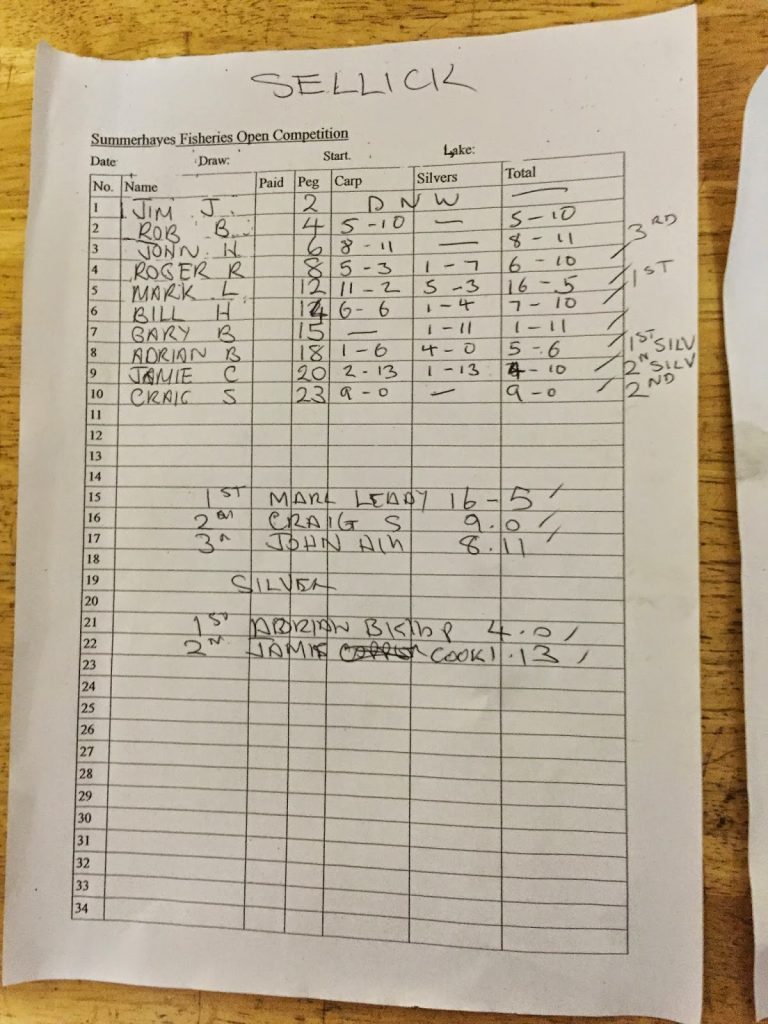 SELLICK
Summerhayes Fisheries Open Competition
Date Draw: Start. Lake:
No. Name Paid Peg Carp Silvers Total
1 JIM J. 2 DNW —
2 ROB B. 4 5-10 — 5-10
3 JOHN H 6 8-11 — 8-11 / 3RD
4 ROGER R 8 5-3 1-7 6-10
5 MARK L 12 11-2 5-3 16-5 / 1ST
6 BILL H 14 6-6 1-4 7-10 /
7 GARY B 15 — 1-11 1-11 /
8 ADRIAN B 18 1-6 4-0 5-6 / 1ST SILV
9 JAMIE C 20 2-13 1-13 4-10 / 2N SILV
10 CRAIG S 23 9-0 — 9-0 / 2ND
11
12
13
14
15 1ST MARK LEADY 16-5 /
16 2 CRAIG S 9.0 /
17 3 JOHN 8.11 /
18
19 SILVER
20
21 1ST ADRIAN 4.0 /
22 2N JAMIE COOK 1.13 /
23
24
25
26
27
28
29
30
31
32
33
34